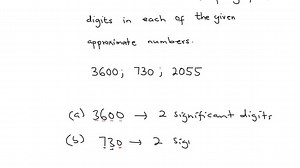 digits in each of the given
approximate numbers.
3600; 730; 2055
(a) 3600 → 2 significant digits
(b) 730 → 2 sig